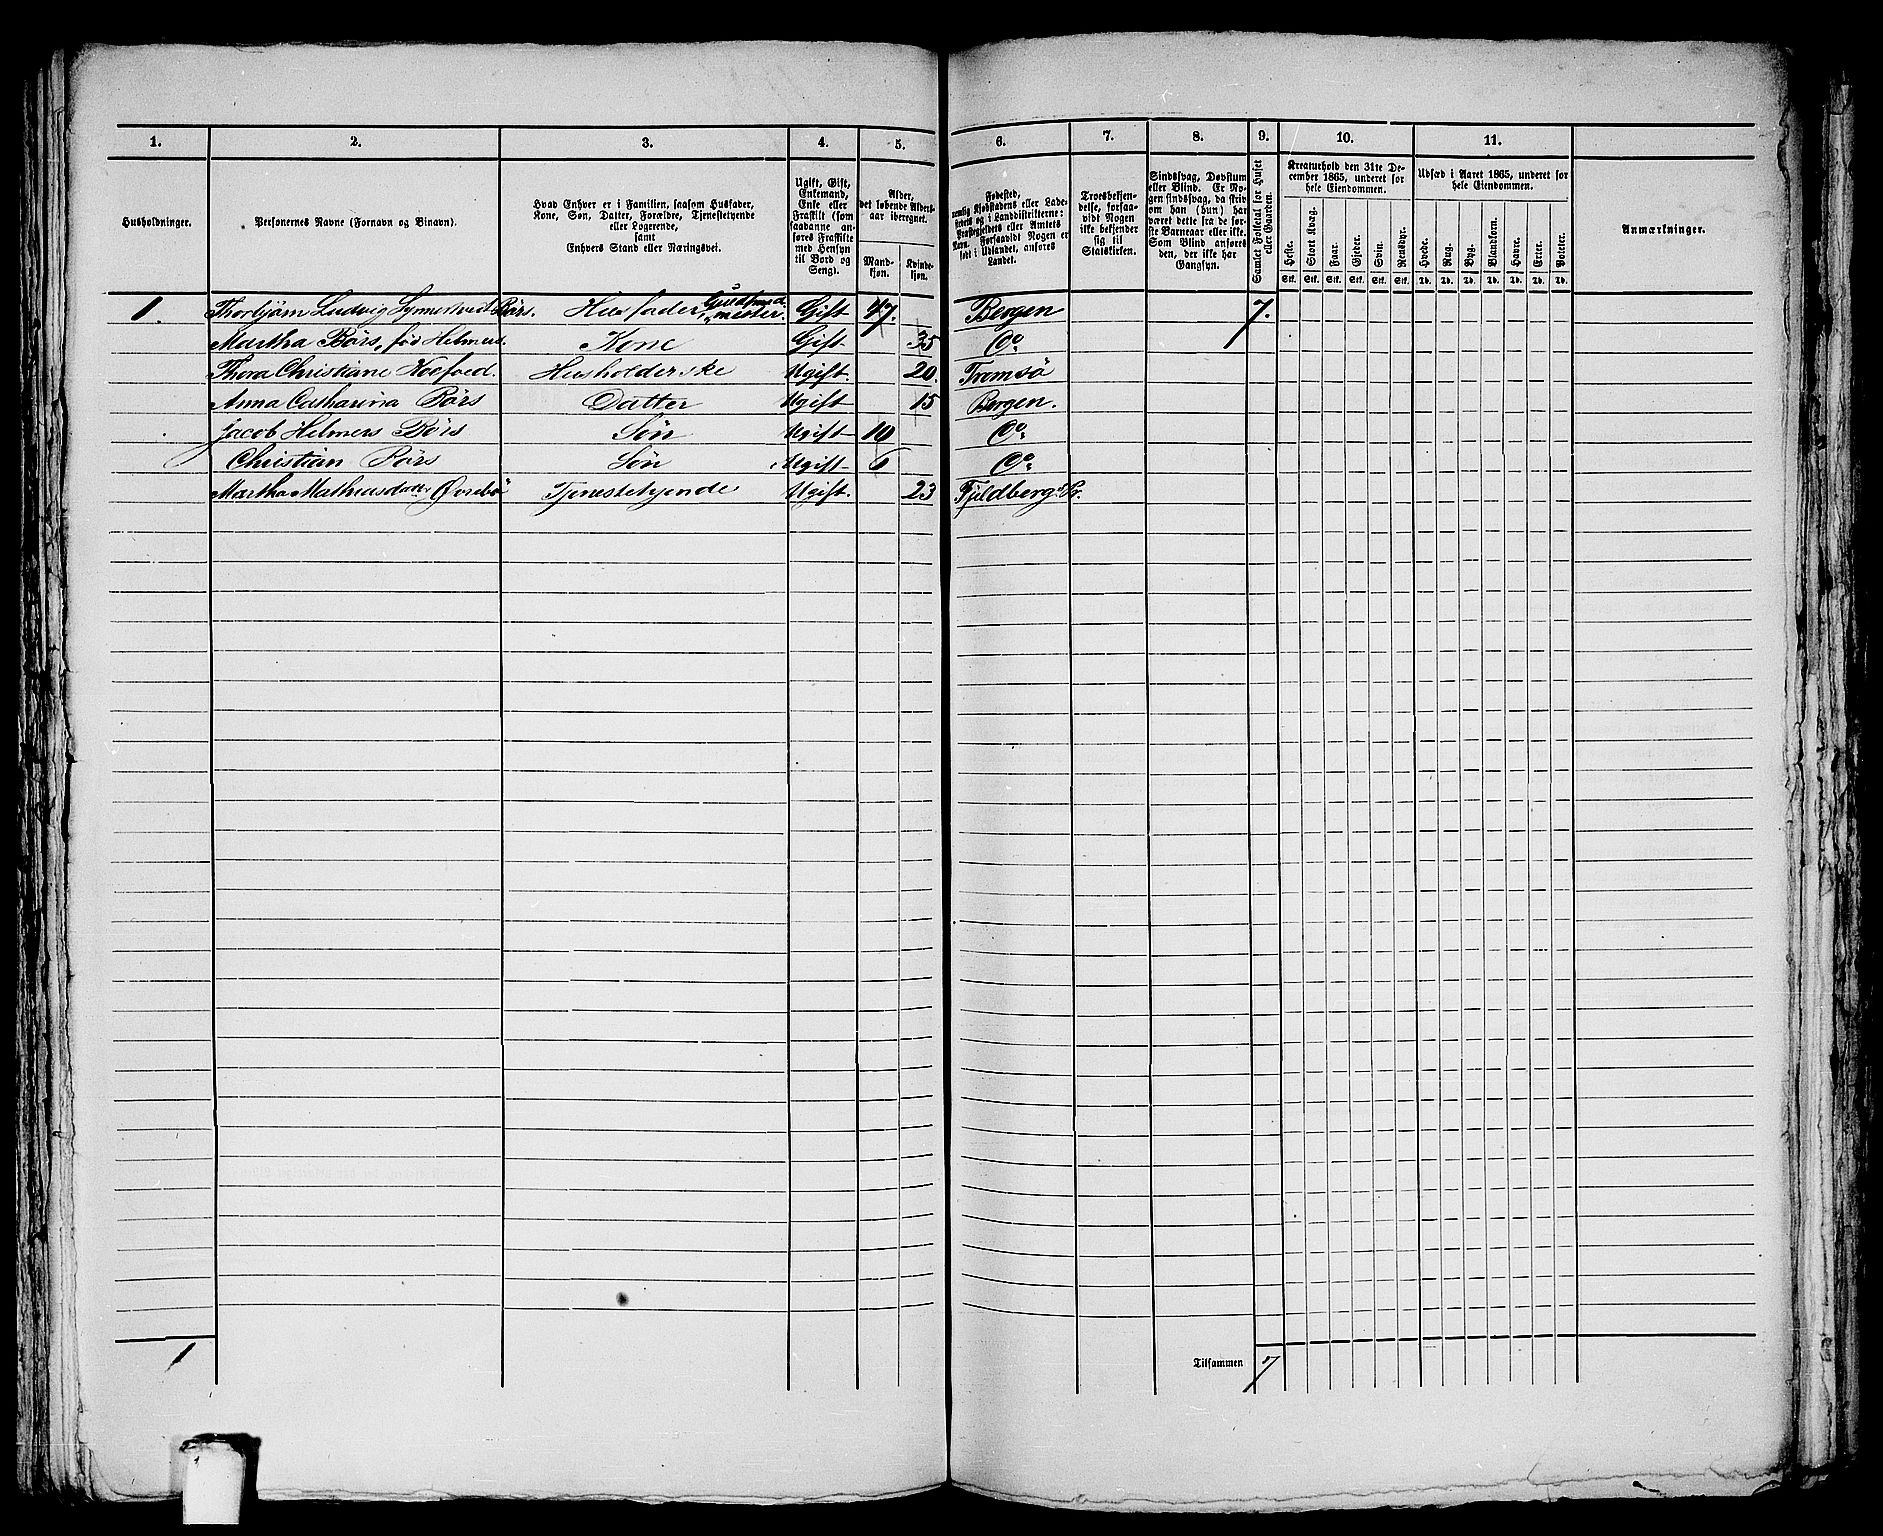 1. 2. 3. 4. 5. 6. 7. 8. 9. 10. 11.
Husholdninger.
Personernes Navne (Fornavn og Binavn).
Hvad Enhver er i Familien, saasom Husfader,
Kone, Søn, Datter, Forældre, Tjenestetyende
eller Logerende,
samt
Enhvers Stand eller Næringsvei.
Ugift, Gift,
Enkemand,
Enke eller
Fraskilt (som
saadanne an-
føres Fraskilte
med Hensyn
til Bord og
Seng).
Alder,
det løbende Alders-
aar iberegnet.
Mand-
kjøn.
Kvinde-
kjøn.
Fødested,
nemlig Kjøbstadens eller Lade-
stedets og i Landdistrikterne:
Præstegjeldets eller Amtets
Navn. Forsaavidt Nogen er
født i Udlandet, anføres
Landet.
Troesbekjen-
delse, forsaa-
vidt Nogen
ikke bekjender
sig til
Statskirken.
Sindssvag, Døvstum
eller Blind. Er No-
gen sindssvag, da skriv
om han (hun) har
været dette fra de før-
ste Barneaar eller ikke.
Som Blind anføres
den, der ikke har
Gangsyn.
Samlet Folketal for Huset
eller Gaarden.
Kreaturhold den 31te De-
cember 1865, underet for
hele Eiendommen.
Heste. Stort Kvæg. Faar. Gjeder. Svin. Rensdyr.
Stk. Stk. Stk. Stk. Stk. Stk.
Udsæd i Aaret 1865, underet for
hele Eiendommen.
Hvede. Rug. Byg. Blandkorn. Havre. Erter. Poteter.
Td. Td. Td. Td. Td. Td. Td.
Anmærkninger.
1. Thorbjörn Ludvig Börs. Husfader, Guldsmedmester. Gift 47. Bergen 7.
Martha Börs, fød Helmers. Kone Gift 35 Do
Thora Christiane Koefoed. Husholderske Ugift. 20. Tromsö
Anna Catharina Börs Datter Ugift 15 Bergen.
Jacob Helmers Börs Søn Ugift 10 Do
Christian Börs Søn Ugift 6 Do
Martha Mathiasdatter Øvrebö Tjenestetyende Ugift. 23 Fjeldberg Pr.
1 Tilsammen 7